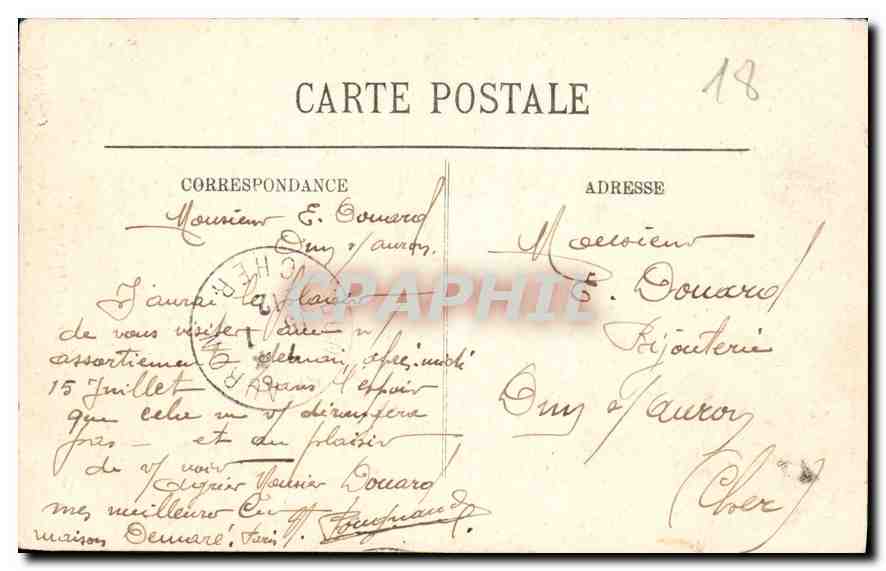 18
CARTE POSTALE
CORRESPONDANCE
Monsieur E. Douard
Dun s/auron.
J'aurai le plaisir
de vous visiter avec n/
assortiment demain, après-midi
15 Juillet Dans l'espoir
que cela ne v/ dérangera
pas — et au plaisir
de v/ voir
Agréer Monsieur Douard
mes meilleures
maison Demaré. Paris
ADRESSE
Monsieur
E. Douard
Bijouterie
Dun s/auron
(Cher)
CHER
CPAPHIL.com